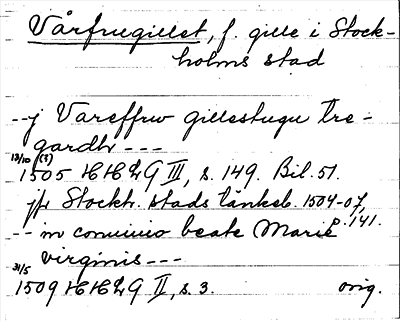 Vårfrugillet, f. gille i Stock-
holms stad
--j Vareffrw gillestugu tre-
gardh ---
13/10 (?)
1505 HHLG III, s. 149. Bil. 51.
jfr Stockh. stads tänkeb. 1504-07,
p. 141.
-- in conuiuio beate Marie
virginis ---
31/5
1509 HHLG II, s. 3. orig.